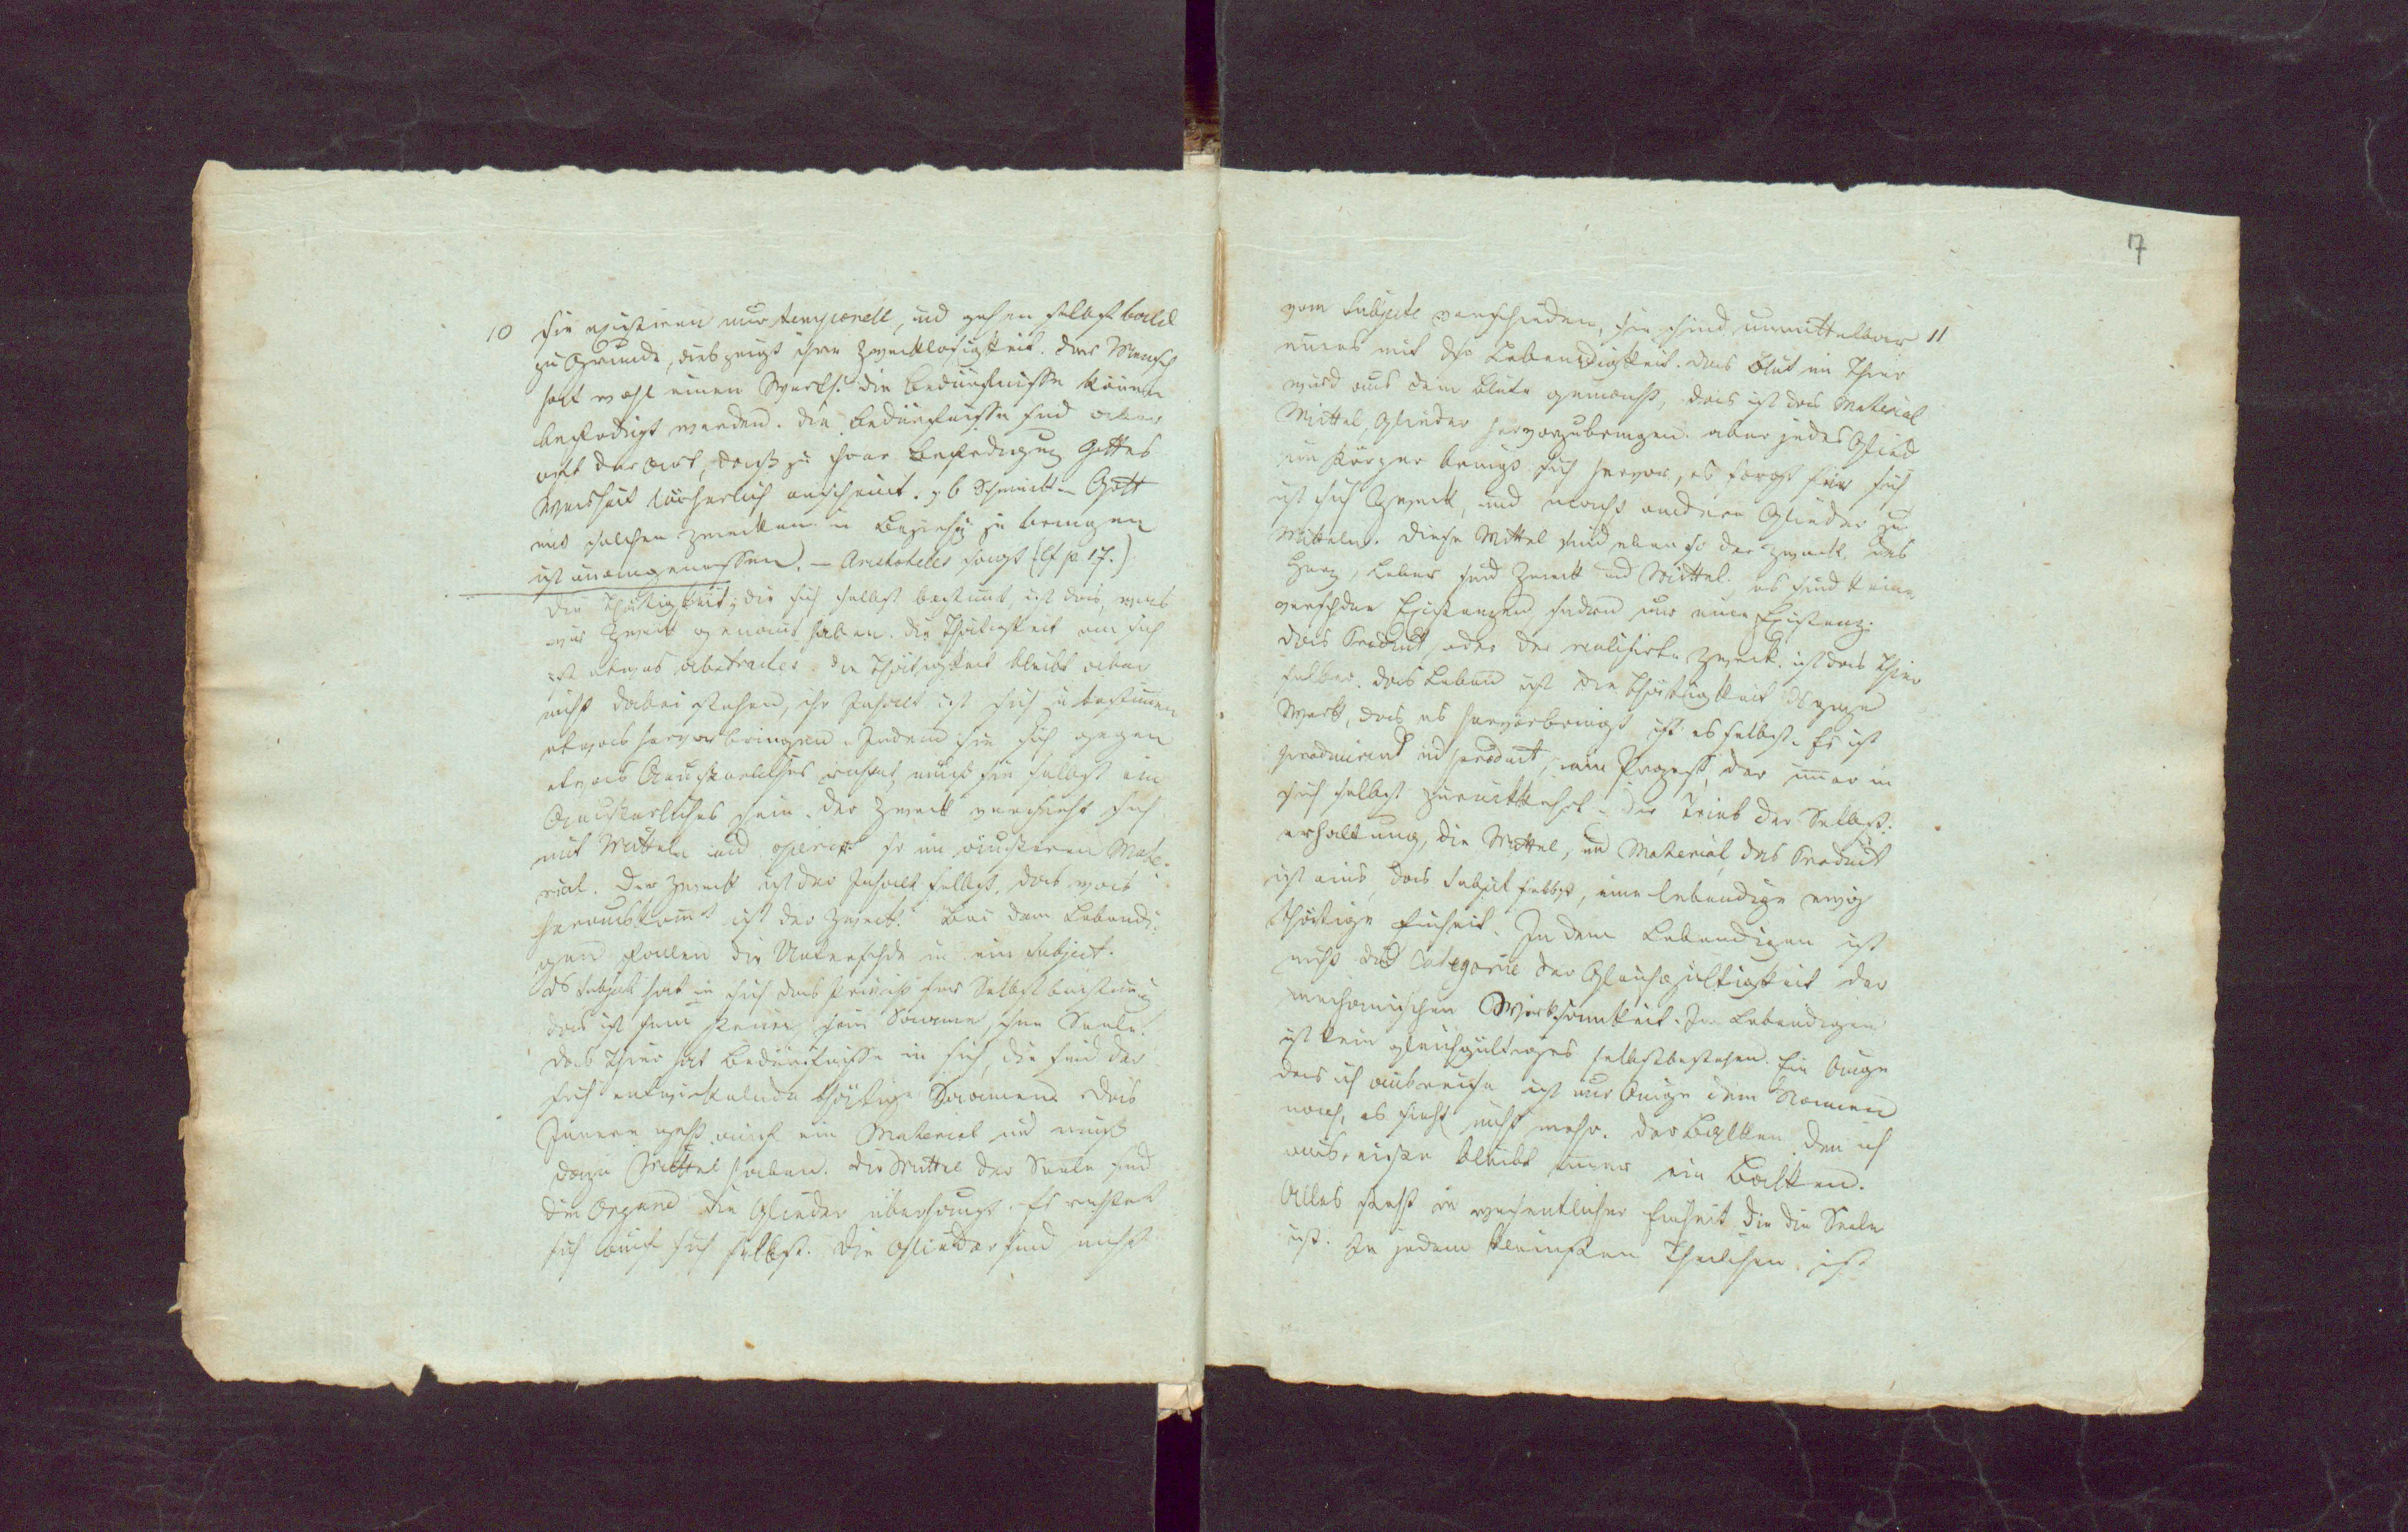 10 sie existiren nur temporell, und gehen selbst bald
zu Grunde, dieß zeigt ihre Zwecklosigkeit. Der Mensch
hat wohl einen Werth. die Bedürfnisse können
befriedigt werden. Die Bedürfnisse sind aber
oft der Art, daß zu ihrer Befriedigung Gottes
Weisheit lächerlich erscheint. z b Schminke – Gott
mit solchen Zwecken in Beziehg zu bringen
ist unangemessen. – Aristoteles sagt (cf p. 17.)
Die Thätigkeit, die sich selbst bestimmt, ist das, was
wir Zweck genannt haben. Die Thätigkeit an sich
ist etwas abstractes. Die Thätigkeit bleibt aber
nicht dabei stehen, ihr Inhalt ist sich zu bestimmen
etwas hervorbringen. Indem sie sich gegen
etwas Aeusserliches richtet, muß sie selbst ein
Aeusserliches sein. Der Zweck versieht sich
mit Mitteln und operirt so im äusseren Mate-
rial. Der Zweck ist der Inhalt selbst, das was
herauskomt ist der Zweck. Bei dem Lebendi-
gen fallen die Unterschde in ein Subject.
Ds Subject hat in sich das Princip sr Selbstbestimung
das ist sein sein Saame, seine Seele.
Das Thier hat Bedürfnisse in sich, die sind der
sich entwickelnde thätige Saamen. Das
Innere geht auf ein Material und muß
dazu Mittel haben. Die Mittel der Seele sind
die Organe die Glieder überhaupt. Es richtet
sich auf sich selbst. Die Glieder sind nicht
17
vom Subjecte verschieden, sie sind unmittelbar 11
eines mit dsr Lebendigkeit. Das Blut im Thier
wird aus dem Blute gemacht, das ist das Material
Mittel, Glieder hervorzubringen. aber jedes Glied
im Körper bringt sich hervor, es sorgt für sich
ist sich Zweck, und macht andere Glieder zu
Mitteln. Diese Mittel sind eben so der Zweck. Das
Herz, Leber sind Zweck und Mittel. es sind keine
verschdne Existenzen, sondern nur eine Existenz.
Das Product, oder der realisirte Zweck, ist das Thier
selber. Das Leben ist die Thätigkeit
Werk, das es hervorbringt ist es selbst. Es ist
producirend und product, ein Prozeß, der immer in
sich selbst zurückkehrt. Der Trieb der Selbst-
erhaltung, die Mittel, und Material, das Product
ist eins, das Subject selbst, eine lebendige ewig
thätige Einheit. In dem Lebendigen ist
nicht die Categorie der Gleichgültigkeit der
mechanischen Wirksamkeit. Im Lebendigen
ist kein gleichgültiges selbstbestehen. Ein Auge
das ich ausreiße ist nur Auge dem Namen
nach, es sieht nicht mehr. Der Balken den ich
ausreiße bleibt immer ein Balken.
Alles steht in wesentlicher Einheit die die Seele
ist. In jedem kleinsten Theilchen ist